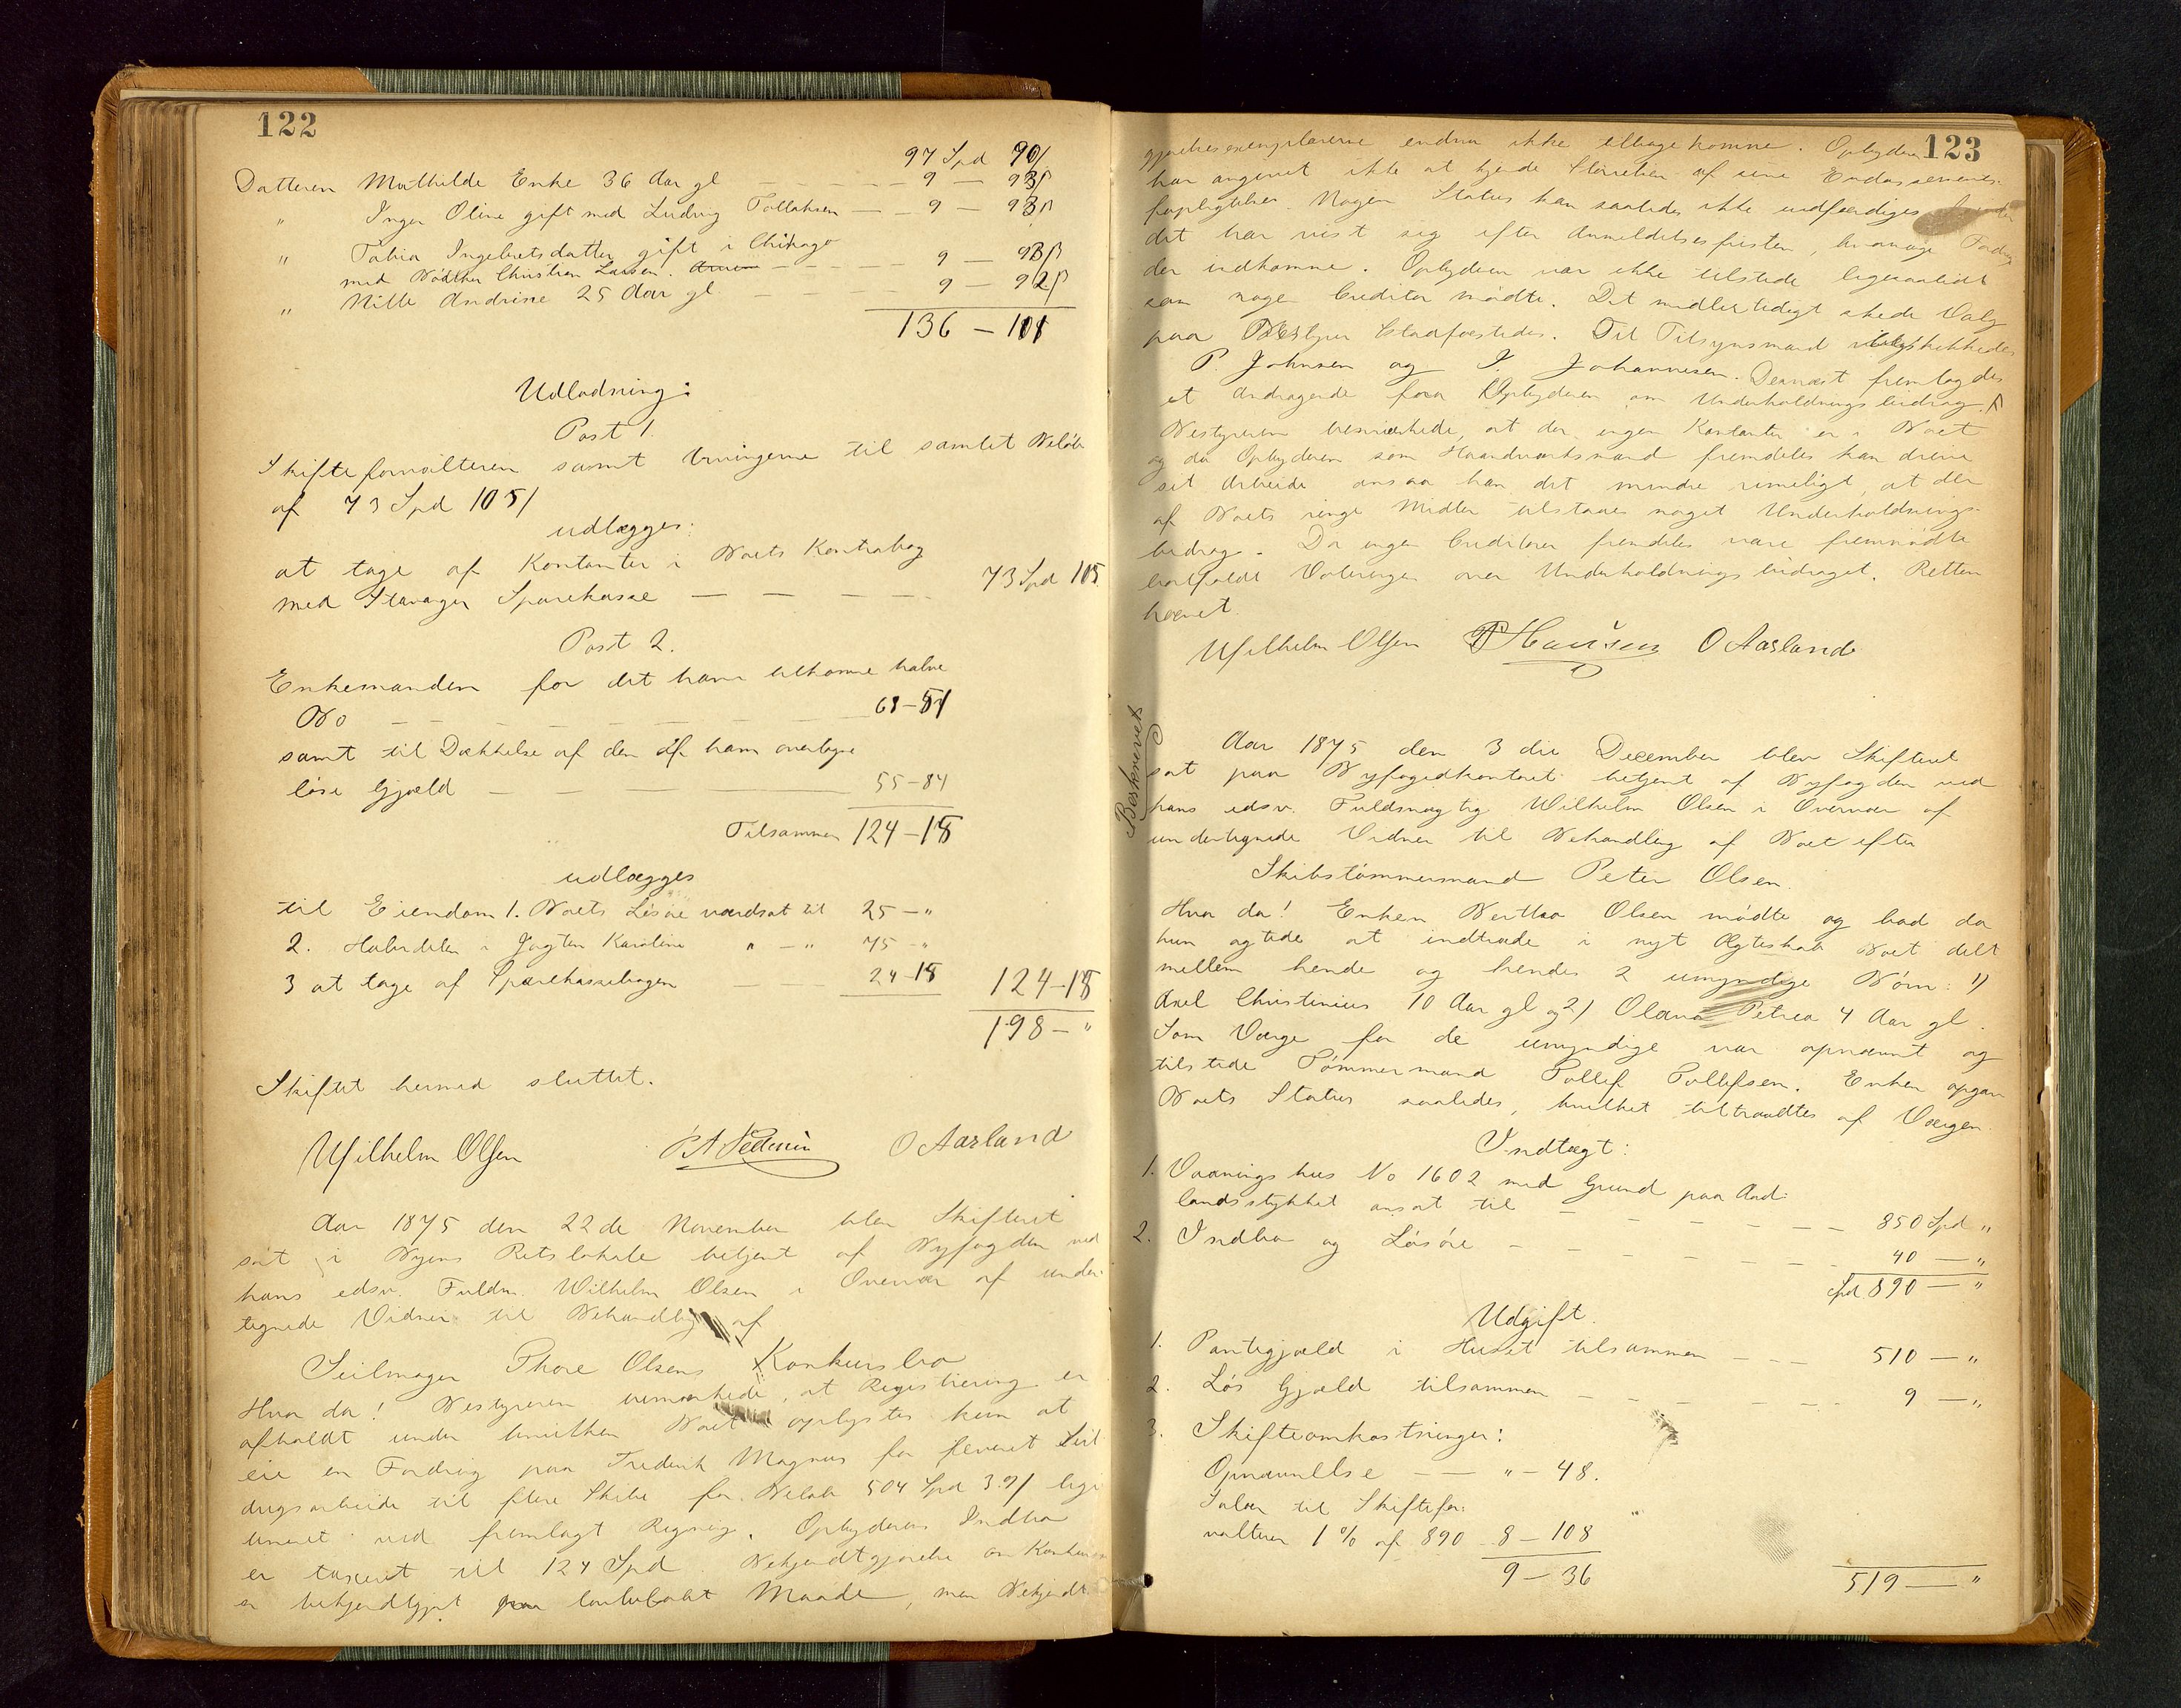 122
97 Spd 90/
Datteren Mathilde Enke 36 Aar gl — 9 — 93β
" Inger Oline gift med Ludvig Tollaksen — 9 — 93β
" Tobia Ingebretsdatter gift i Chikago
med Christian Larsen — 9 — 93β
" Mille Andrine 25 Aar gl — 9 — 92β
136 — 101
Udlodning:
Post 1.
Skifteforvalteren samt til samlet Beløb
af 73 Spd 105/
udlægges:
at tage af Kontanter i Boets Kontrabog
med Stavanger Sparekasse — — — — 73 Spd 105
Post 2.
Enkemanden for det ham tilkomne halve
Bo — 68 — 51
samt til Dækkelse af den af ham overtagne
løse Gjæld — — — 55 — 84
Tilsammen 124 — 15
udlægges
til Eiendom 1. Boets Løsøre værdsat til 25 — "
2. Halvdelen i Jagten Karoline " — " 75 — "
3 at tage af Sparekassebogen — 24 — 15 124 — 15
198 — "
Skiftet hermed sluttet.
Wilhelm Olsen O Aarland
Aar 1875 den 22de November blev Skifteret
sat i Byens Retslokale betjent af Byfogden ved
hans edsv. Fuldm. Wilhelm Olsen i Overvær af under-
tegnede Vidner til Behandling af
Seilmager Thore Olsens Konkursbo
Hvor da! Bestyreren bemærkede, at Registrering er
afholdt under hvilken Boet oplystes kun at
eie en Fordring paa Frederik Magnus for leveret Seil
dugsarbeide til flere Skibe for Beløb 504 Spd 39/ legi
timeret ved fremlagt Regning. Opbyderens Indbo
er taxeret til 124 Spd. Bekjendtgjørelse om Konkursen
er bekjendtgjort paa lovbefalet Maade, men Bekjendt-
123
gjørelsesexemplarerne endnu ikke tilbagekomne. Opbyderen
har angivet ikke at kjende Størrelsen af sine Endossements-
forpligtelser. Nogen Status kan saaledes ikke udfærdiges førinden
det har vist sig efter Anmeldelsesfristen, hvormange Fordr
der indkomme. Opbyderen var ikke tilstede ligesaalidt
som nogen Creditor mødte. Det midlertidigt skede Valg
paa Bestyrer stadfæstedes. Til Tilsynsmænd
P. Johnsen og J. Johannesen. Dernæst fremlagdes
et Andragende fra Opbyderen om Underholdningsbidrag.
Bestyreren bemærkede, at der ingen Kontanter er i Boet
og da Opbyderen som Haandværksmand fremdeles kan drive
sit Arbeide ansaa han det mindre rimeligt, at der
af Boets ringe Midler tilstaaes noget Underholdnings-
bidrag. Da ingen Creditorer fremdeles vare fremmødte
bortfaldt Voteringen over Underholdningsbidraget. Retten
hævet.
Wilhelm Olsen P Hansen O Aarland
Beskrevet
Aar 1875 den 3die December blev Skifteret
sat paa Byfogedkontoret betjent af Byfogden ved
hans edsv. Fuldmægtig Wilhelm Olsen i Overvær af
undertegnede Vidner til Behandling af Boet efter
Skibstømmermand Peter Olsen.
Hvor da! Enken Bertha Olsen mødte og bad da
hun agtede at indtræde i nyt Ægteskab Boet delt
mellem hende og hendes 2 umyndige Børn: 1)
Axel Christinius 10 Aar gl og 2) Olava Petrea 4 Aar gl.
Som Værge for de umyndige var opnævnt og
tilstede Tømmermand Tollef Tollefsen. Enken opgav
Boets Status saaledes, hvilket tiltraadtes af Værgen.
Indtægt:
1. Vaaningshus No 1602 med Grund paa Aad-
landsstykket ansat til — 850 Spd "
2. Indbo og Løsøre — 40 — "
Spd 890 — "
Udgift.
1. Pantegjæld i Huset tilsammen — 510 — "
2. Løs Gjæld tilsammen — 9 — "
3. Skifteomkostninger:
Opnævnelse — " — 48.
Salær til Skiftefor-
valteren 1% af 890 8 — 108
9 — 36 519 — "